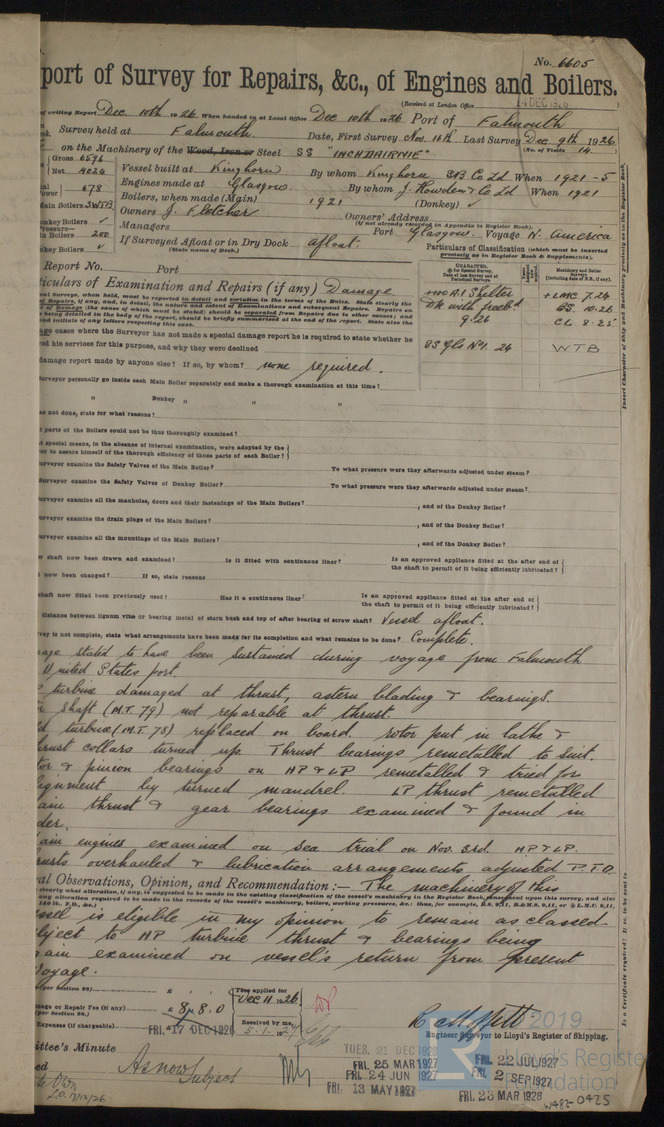 No. 6605
port of Survey for Repairs, &c., of Engines and Boilers.
(Received at London Office 14 DEC 1926 )
of writing Report Dec 10th 1926 When handed in at Local Office Dec 10th 1926 Port of Falmouth
Survey held at Falmouth. Date, First Survey Nov. 16th Last Survey Dec 9th 1926
(No. of Visits 14.)
on the Machinery of the Wood, Iron or Steel SS "INCHDAIRNIE"
Gross 6596
Net 4024
Vessel built at Kinghorn By whom Kinghorn SB Co Ld When 1921-5
678
Engines made at Glasgow By whom J. Howden & Co Ld When 1921
Main Boilers 3WTB
Boilers, when made (Main) 1921 (Donkey) ✓
Donkey Boilers ✓
Owners J. Fletcher Owners' Address
(If not already recorded in Appendix to Register Book).
in Boilers 200
Managers Port Glasgow. Voyage N. America
nkey Boilers ✓
If Surveyed Afloat or in Dry Dock afloat.
(State name of Dock.)
Particulars of Classification (which must be inserted
precisely as in Register Book & Supplements).
Report No. Port
ticulars of Examination and Repairs (if any) Damage
CHARACTER.
Machinery and Boiler
Surveys
+100A1 Shelter
Dk with freebd
9.26
+LMC 7.24
BS. 10.26
CL 8.25
SS Glo No1. 24
WTB
age cases where the Surveyor has not made a special damage report he is required to state whether he
ed his services for this purpose, and why they were declined
damage report made by anyone else? If so, by whom? none required.
urveyor personally go inside each Main Boiler separately and make a thorough examination at this time?
" Donkey " " "
as not done, state for what reasons?
parts of the Boilers could not be thus thoroughly examined?
t special means, in the absence of internal examination, were adopted by the
or to assure himself of the thorough efficiency of those parts of each Boiler?
urveyor examine the Safety Valves of the Main Boiler? To what pressure were they afterwards adjusted under steam?
urveyor examine the Safety Valves of Donkey Boiler? To what pressure were they afterwards adjusted under steam?
urveyor examine all the manholes, doors and their fastenings of the Main Boilers? , and of the Donkey Boiler?
urveyor examine the drain plugs of the Main Boilers? , and of the Donkey Boiler?
urveyor examine all the mountings of the Main Boilers? , and of the Donkey Boiler?
w shaft now been drawn and examined? Is it fitted with continuous liner? Is an approved appliance fitted at the after end of
the shaft to permit of it being efficiently lubricated?
t now been changed? If so, state reasons
aft now fitted been previously used? Has it a continuous liner? Is an approved appliance fitted at the after end of
the shaft to permit of it being efficiently lubricated?
distance between lignum vitæ or bearing metal of stern bush and top of after bearing of screw shaft? Vessel afloat.
rvey is not complete, state what arrangements have been made for its completion and what remains to be done? Complete.
age stated to have been sustained during voyage from Falmouth
United States port.
turbine damaged at thrust, astern blading & bearings.
shaft (M.T. 79) not reparable at thrust.
d turbine (M.T. 78) replaced on board. rotor put in lathe &
hrust collars turned up. Thrust bearings remetalled to suit.
tor & pinion bearings on HP & LP remetalled & tried for
lignment by turned mandrel. LP thrust remetalled
ain thrust & gear bearings examined & found in
der.
ain engines examined on sea trial on Nov. 3rd. HP & LP.
rusts overhauled & lubrication arrangements adjusted P.T.O.
al Observations, Opinion, and Recommendation :— The machinery of this
ssel is eligible in my opinion to remain as classed
bject to HP turbine thrust & bearings being
ain examined on vessel's return from present
voyage.
(per Section 28) £ : : Fees applied for
Dec 11 1926
mage or Repair Fee (if any) £ 8 : 8 : 0
(per Section 28.)
Received by me,
Expenses (if chargeable) £
FRI. 17 DEC 1926
Engineer Surveyor to Lloyd's Register of Shipping.
ittee's Minute
TUES. 21 DEC 192
FRI. 25 MAR 1927
FRI. 24 JUN 1927
FRI. 13 MAY 1927
FRI. 22 JUL 1927
FRI. 2 SEP 1927
FRI. 23 MAR 1928
As now
Subject
2019
Lloyd's Register
Foundation
W482-0425